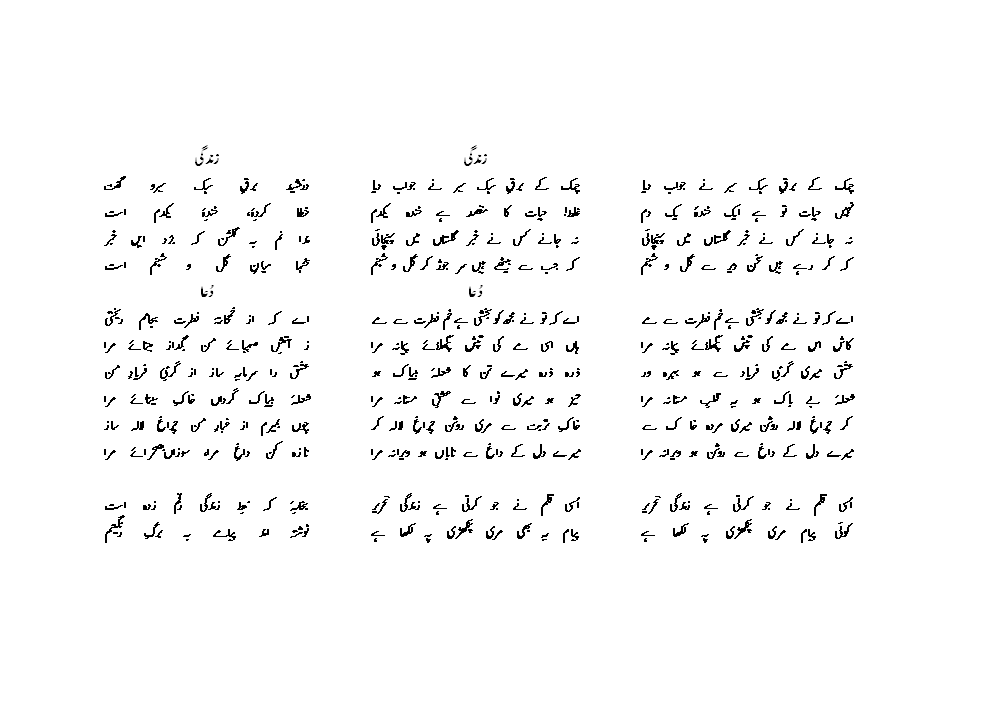 چمک کے برقِ سبک سیر نے جواب دیا
نہیں حیات تو ہے ایک خندۂ یک دم
نہ جانے کس نے خبر گلستاں میں پہنچائی
کہ کر رہے ہیں سخن دیر سے گل و شبنم
اے کہ تو نے مجھ کو بخشی ہے خمِ فطرت سے مے
کاش اس مے کی تپش پگھلائے پیمانہ مرا
عشق میری گرمیِ فریاد سے ہو بہرہ ور
شعلۂ بے باک ہو یہ قلبِ مستانہ مرا
کر چراغِ لالہ روشن میری مردہ خاک سے
میرے دل کے داغ سے روشن ہو ویرانہ مرا
اُسی قلم نے جو کرتی ہے زندگی تحریر
کوئی پیام مری پنکھڑی پہ لکھا ہے
زندگی
چمک کے برقِ سبک سیر نے جواب دیا
غلط! حیات کا مقصد ہے خندہ یکدم
نہ جانے کس نے خبر گلستاں میں پہنچائی
کہ جب سے بیٹھے ہیں سر جوڑ کر گل و شبنم
دُعا
اے کہ تو نے مجھ کو بخشی ہے خمِ فطرت سے مے
ہاں اسی مے کی تپش پگھلائے پیمانہ مرا
ذرہ ذرہ میرے تن کا شعلۂ بیباک ہو
تیز ہو میری نوا سے عشقِ مستانہ مرا
خاکِ تربت سے مری روشن چراغِ لالہ کر
میرے دل کے داغ سے تاباں ہو ویرانہ مرا
اُسی قلم نے جو کرتی ہے زندگی تحریر
پیام یہ بھی مری پنکھڑی پہ لکھا ہے
زندگی
درخشید برقِ سبک سیرو گفت
خطا کردۂ، خندۂ یکدم است
ندا نم بہ گلشن کہ برد ایں خبر
سخنہا میانِ گل و شبنم است
دُعا
اے کہ از خمخانۂ فطرت بجامم ریختی
ز آتشِ صہبائے من بگداز مینائے مرا
عشق را سرمایہ ساز از گرمیِ فریادِ من
شعلۂ بیباک گرداں خاکِ سینائے مرا
چوں بمیرم از غبارِ من چراغِ لالہ ساز
تازہ کن داغِ مرا سوزاں بصحرائے مرا
بخامۂ کہ خطِ زندگی رقم زدہ است
نوشتہ اند پیامے بہ برگِ رنگینم